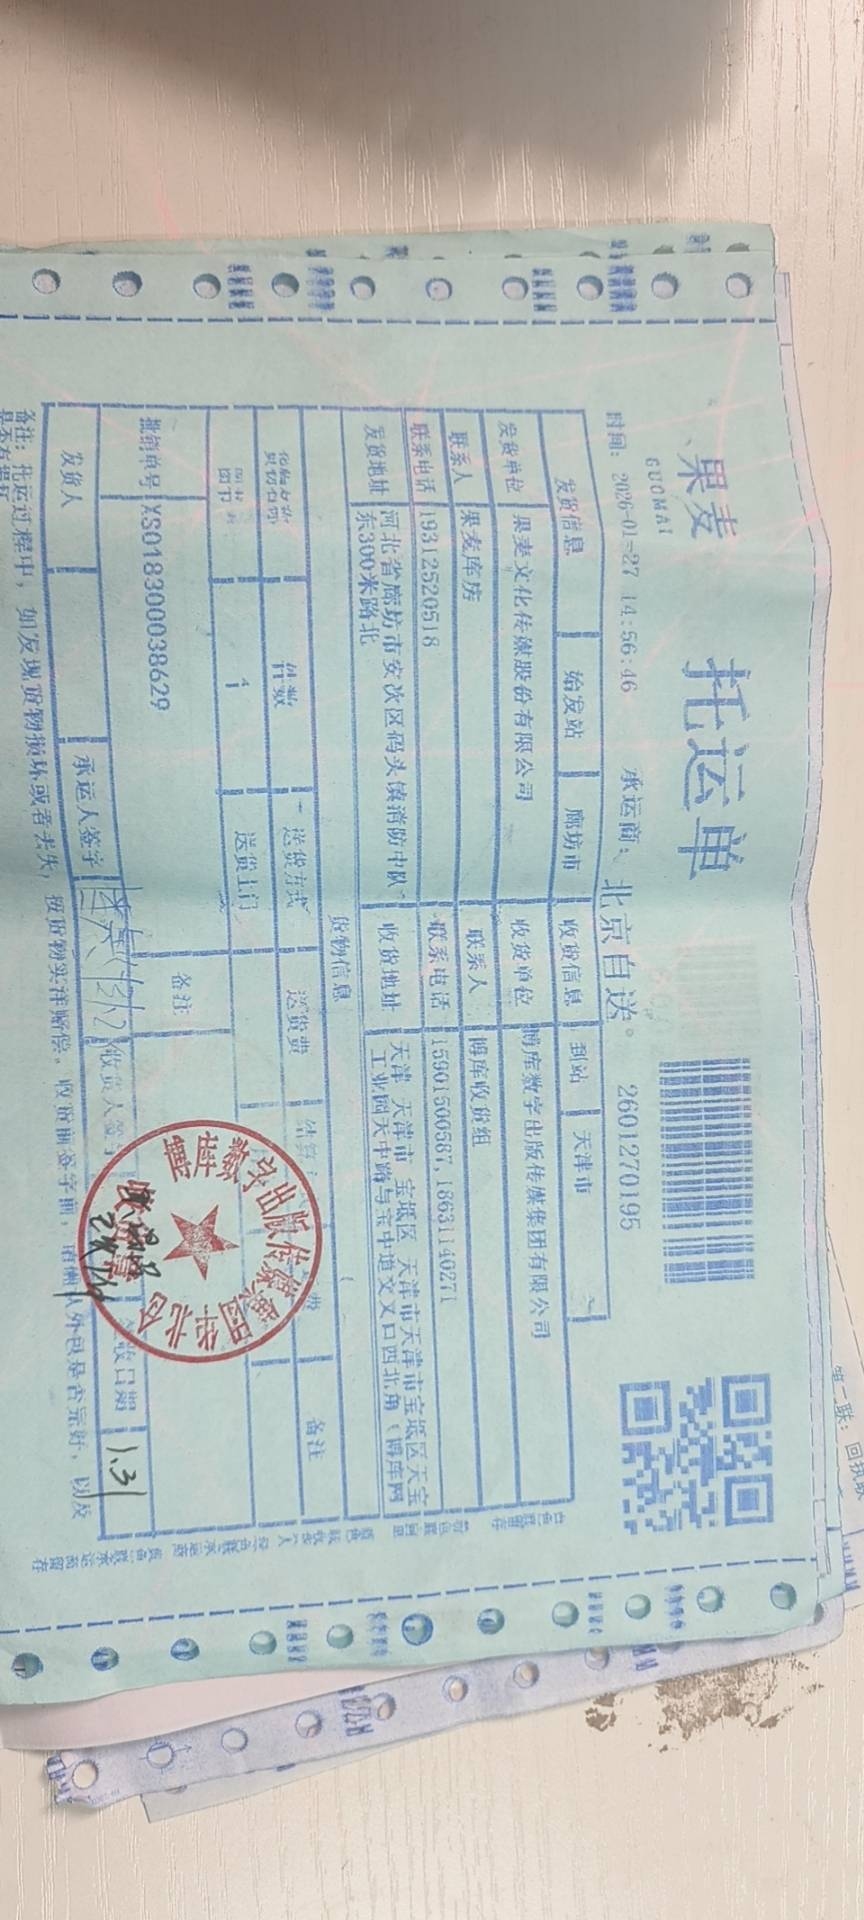 果麦
GUOMAI
托运单
时间: 2026-01-27 14:56:46
承运商: 北京自送
2601270195
发货信息 始发站 廊坊市 收货信息 到站 天津市
发货单位 果麦文化传媒股份有限公司 收货单位 博库数字出版传媒集团有限公司
联系人 果麦库房 联系人 博库收货组
联系电话 19312520518 联系电话 15901500587,18631140271
发货地址 河北省廊坊市安次区码头镇消防中队
东300米路北
收货地址 天津 天津市 宝坻区 天津市天津市宝坻区天宝
工业园天中路与宝中道交叉口西北角(博库网
货物信息
件数 送货方式 送货费 备注
图书 4 送货上门
批销单号 XS018300038629 备注
发货人 承运人签字 收货人签字 收日期 1.31
备注: 托运过程中, 如发现货物损坏或者丢失, 按货物实洋赔偿。收货前签字前, 请确认外包是否完好, 以及
博库数字出版传媒集团
华北仓
第二联: 回执联